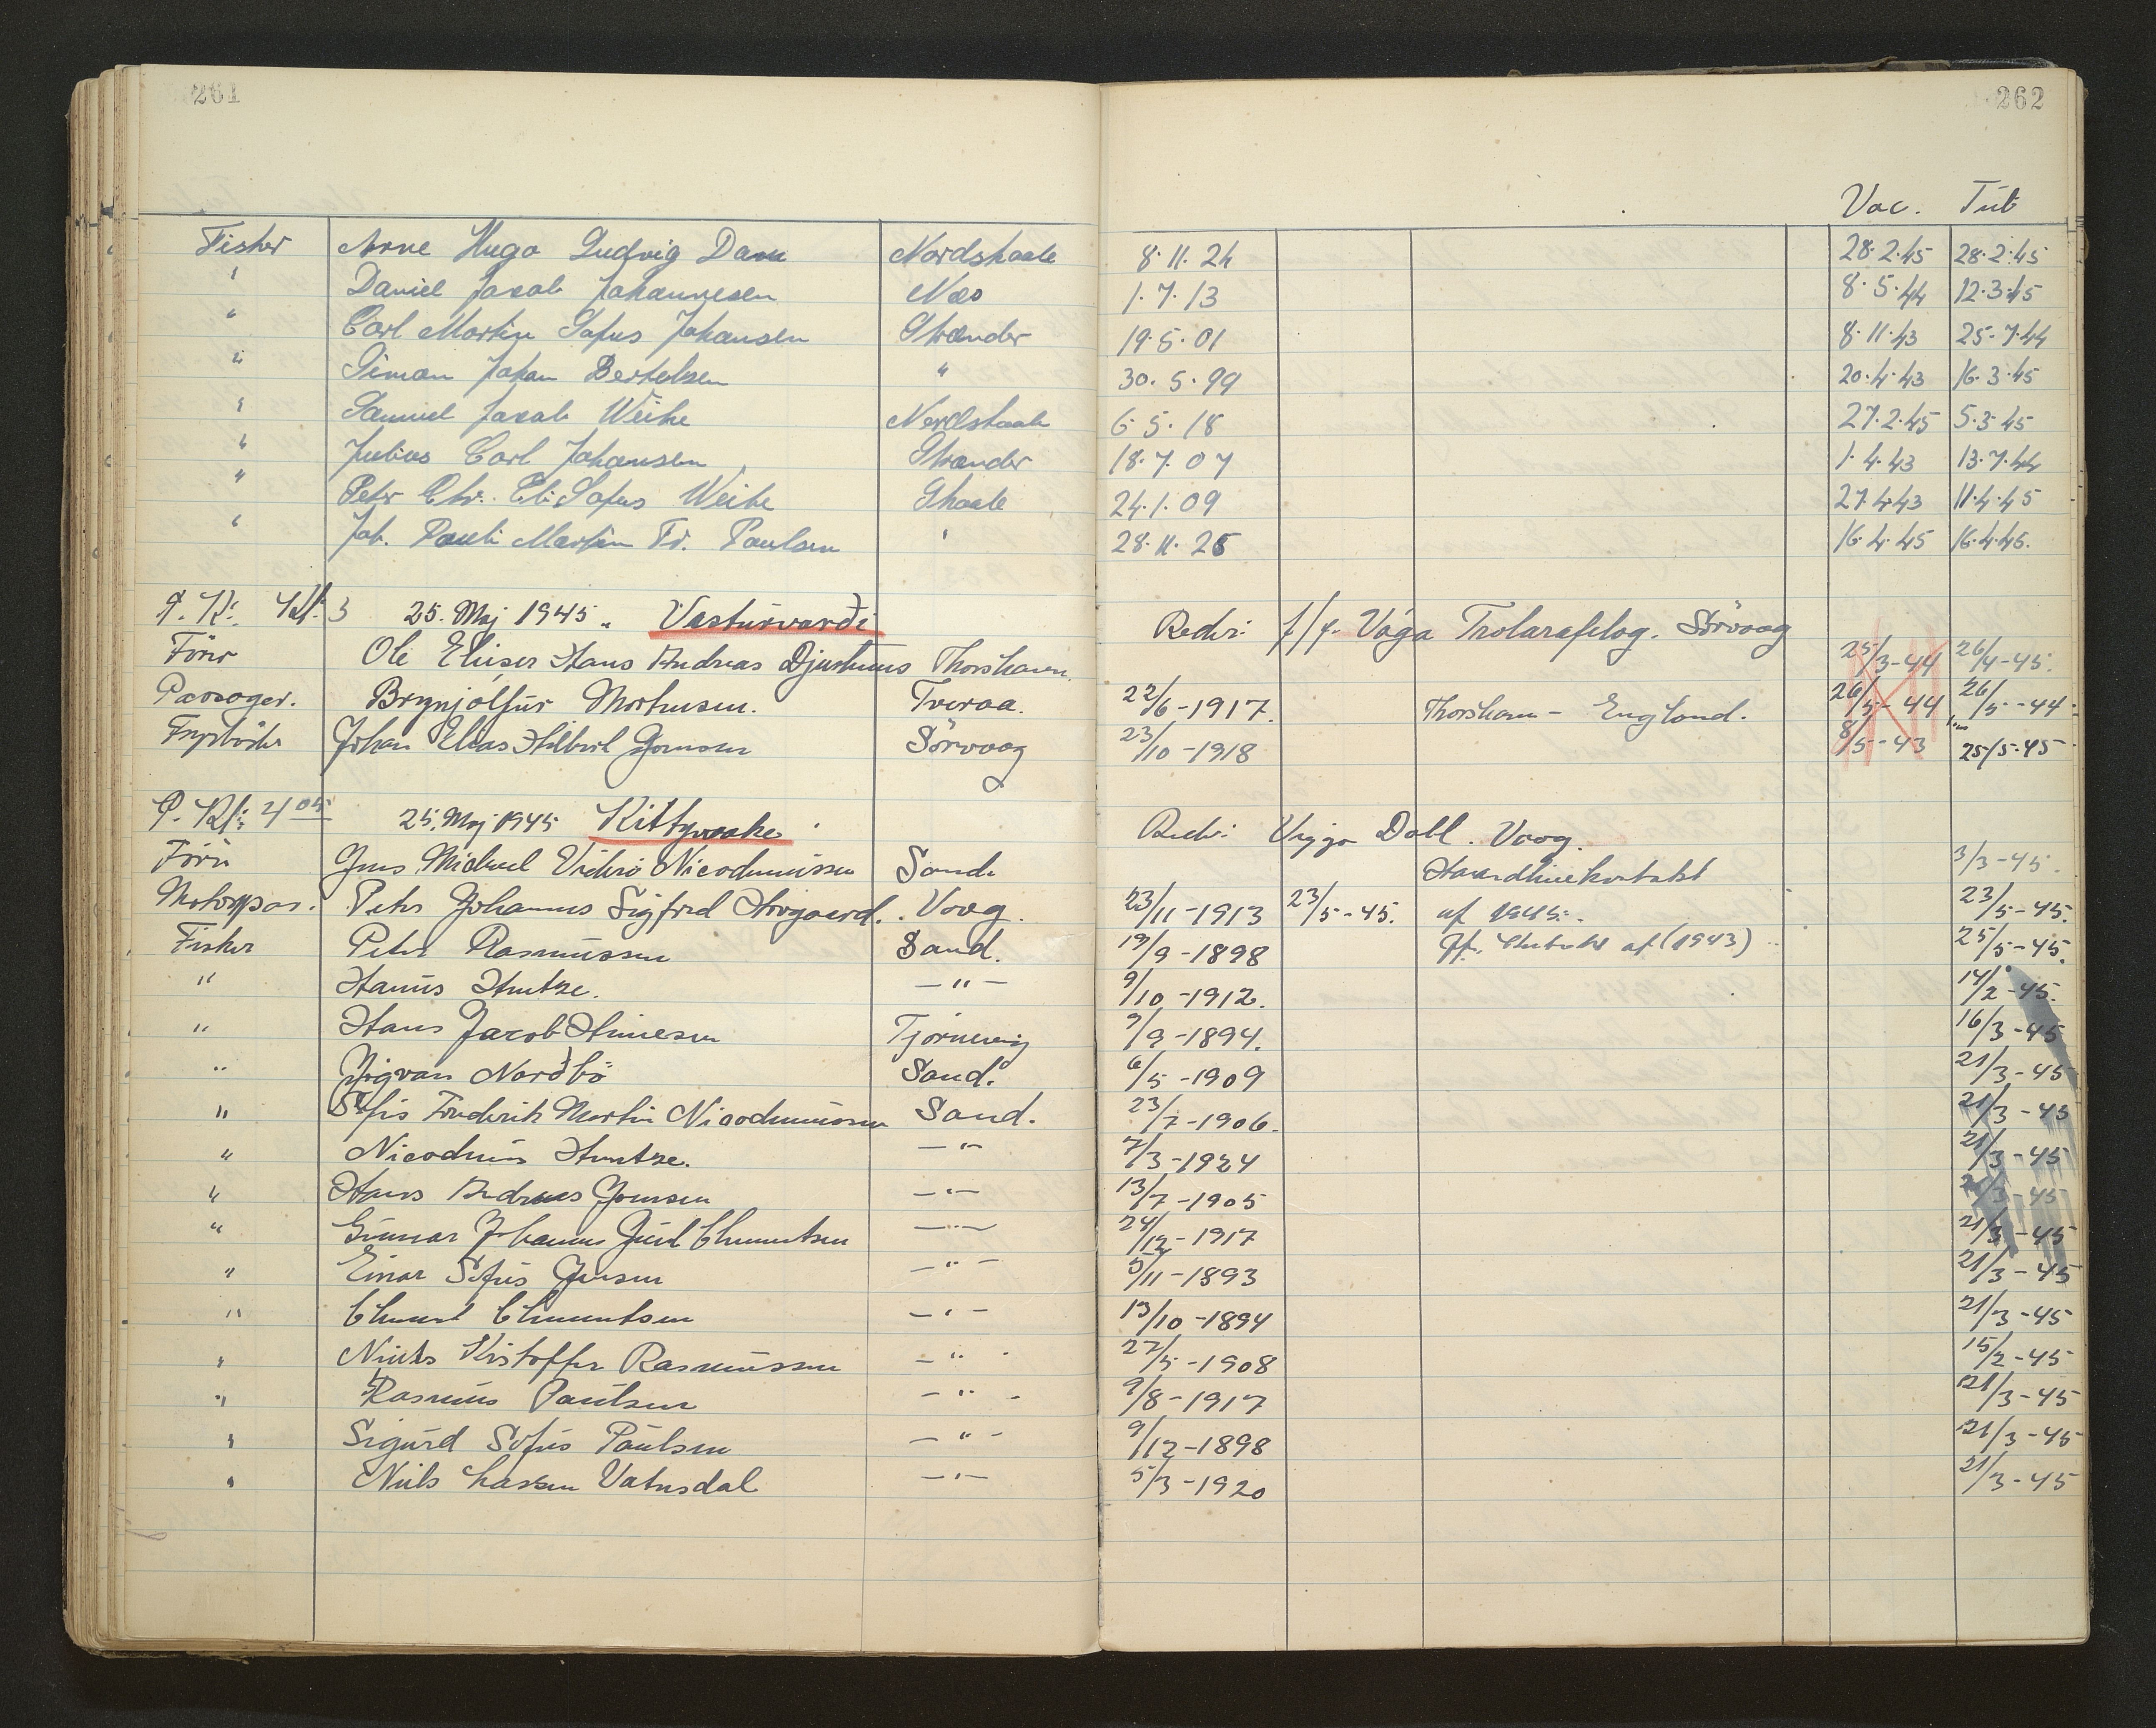 261 262
Vac. Tub
Fisker Arne Hugo Ludvig Dam Nordskaale 8.11.24 28.2.45 28.2.45
" Daniel Jacob Johannesen Næs 1.7.13 8.5.44 12.3.45
" Carl Martin Sofus Johansen Strænder 19.5.01 8.11.43 25.7.44
" Simon Johan Bertelsen " 30.5.99 20.4.43 16.3.45
" Samuel Jacob Weihe Nordskaale 6.5.18 27.2.45 5.3.45
" Julius Carl Johansen Strænder 18.7.07 1.4.43 13.7.44
" Peter Chr. Eli Sofus Weihe Skaale 24.1.09 27.4.43 11.4.45
" Joh. Pauli Martin Fr. Paulsen " 28.11.25 16.4.45 16.4.45.
Kl. 3 25. Maj 1945 Vesturvarði Rederi f/p. Vága Trolarafelag. Sörvaag
Förer Ole Elieser Hans Andreas Djurhuus Thorshavn. 25/3-44 26/4-45.
Passager. Brynjólfur Mortensen. Tveraa. 22/6-1917. Thorshavn - England. 26/5-44 26/5-44.
Fyrböder Johan Elias Hilbert Joensen Sörvaag 23/10-1918 8/5-43 25/5-45
P. Kl. 4 05 25. Maj 1945 Kittywake Rederi Viggo Dahl. Vaag.
Förer Jens Michael Viderö Nicodemussen Sand. Haandlinekontrakt 3/3-45.
Motorpas. Peter Johannes Sigfred Hovgaard. Vaag. 23/11-1913 23/5-45. af 1945. 23/5-45.
Fisker Peter Rasmussen Sand. 19/9-1898 af (1943) 25/5-45.
" Hanus Hentze. -"- 9/10-1912. 14/2-45.
" Hans Jacob Heinesen Tjörnevig 9/9-1894. 16/3-45
" Yngvar Norðbö Sand. 6/5-1909 21/3-45
" Sofus Frederik Martin Nicodemussen Sand. 23/7-1906. 21/3-45
" Nicodemus Hentze. -"- 7/3-1924 21/3-45
" Hans Andreas Joensen -"- 13/7-1905 21/3-45
" Gunnar Johannes Juul Clementsen -"- 24/12-1917 21/3-45
" Einar Sofus Jensen -"- 5/11-1893 21/3-45
" Clement Clementsen -"- 13/10-1894 21/3-45
" Niels Kristoffer Rasmussen -"- 27/5-1908 15/2-45
" Rasmus Paulsen -"- 9/8-1917 21/3-45
" Sigurd Sofus Paulsen -"- 9/12-1898 21/3-45
" Niels Lassen Vatnsdal -"- 5/3-1920 21/3-45